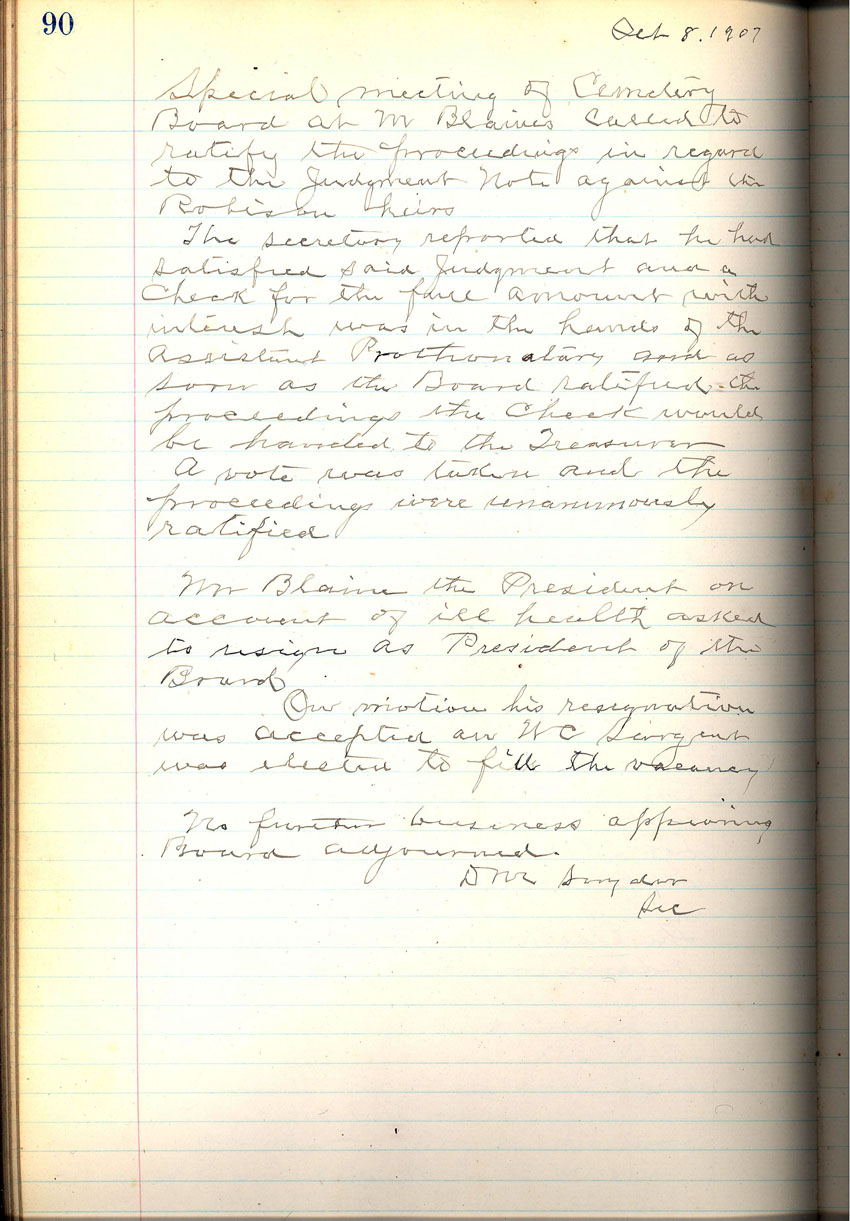 90
Oct 8. 1907
Special meeting of Cemetery
Board at Mr Blaines called to
ratify the proceedings in regard
to the Judgment Note against the
Robison heirs
The secretary reported that he had
satisfied said Judgment and a
Check for the full amount with
interest was in the hands of the
Assistant Prothonotary and as
soon as the Board ratified the
proceedings the Check would
be handed to the Treasurer
A vote was taken and the
proceedings were unanimously
ratified
Mr Blaine the President on
account of ill health asked
to resign as President of the
Board
On motion his resignation
was accepted an W C Sargent
was elected to fill the vacancy
No further business appearing
Board adjourned.
Snyder
Sec